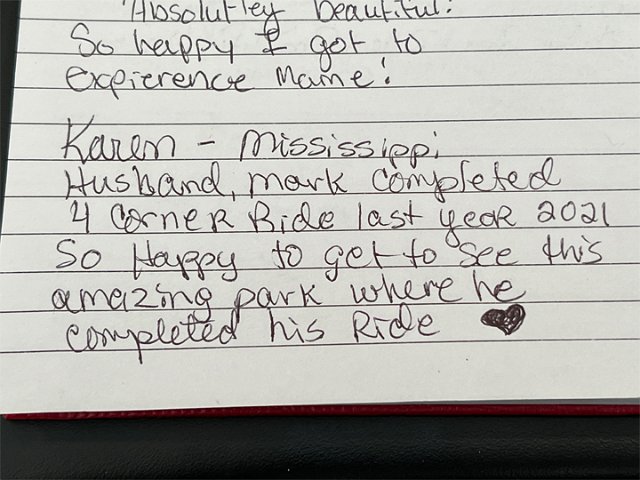 Absolutley beautiful!
So happy I got to
Expierence Maine!
Karen - Mississippi
Husband, mark completed
4 Corner Ride last year 2021
So Happy to get to see this
amazing park where he
completed his Ride ♥